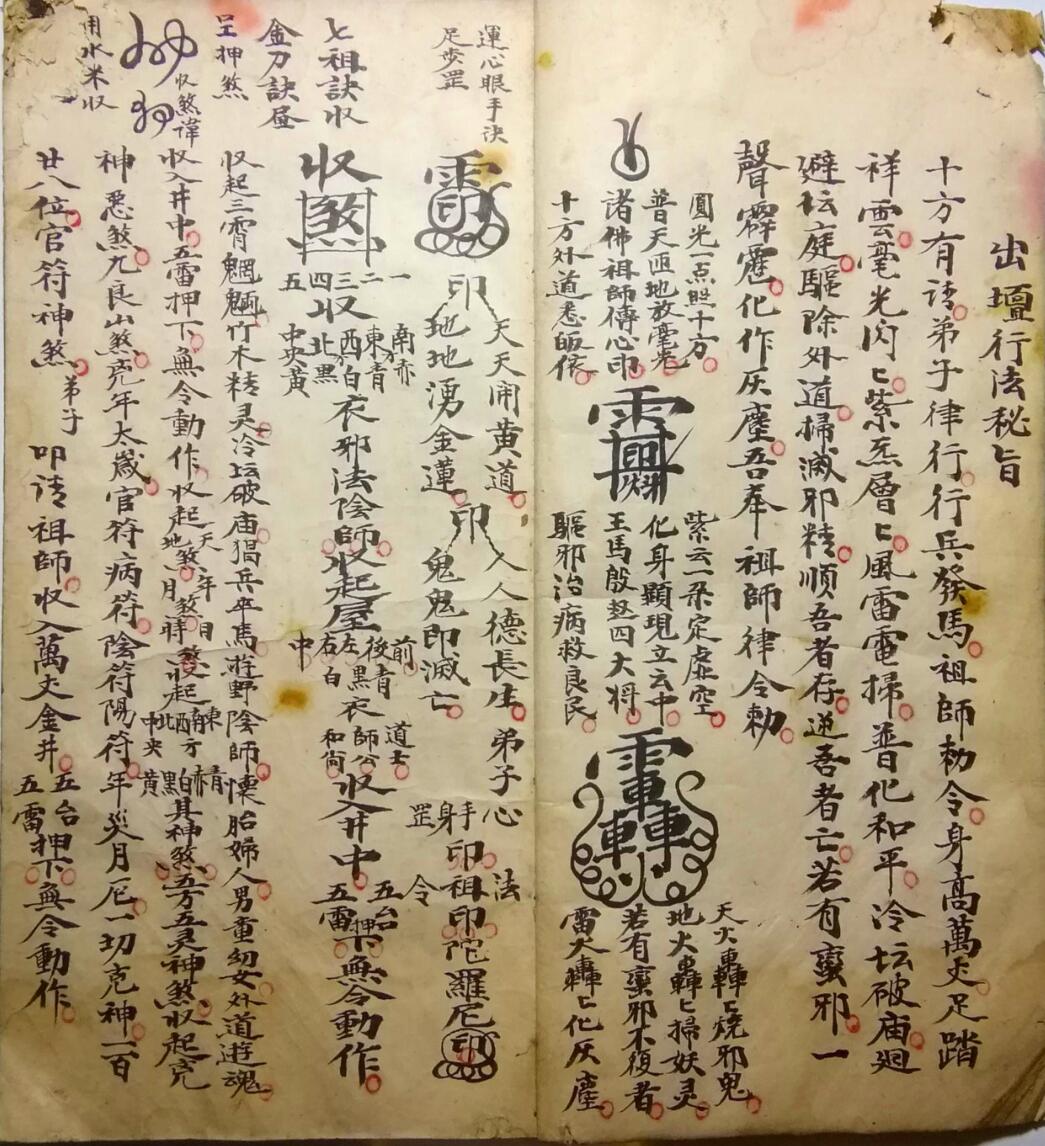 出壇行法秘旨
十方有請弟子律行行兵發馬祖師勑令身高萬丈足踏
祥雲毫光闪匕紫炁層匕風雷電掃普化和平冷坛破庙廻
避坛庭驅除外道掃滅邪精順吾者存逆吾者亡若有蛮邪一
聲霹靂化作灰塵吾奉祖師律令勅
圓光一点照十方
普天匝地放毫光
諸佛祖師傳心印
十方外道悉皈依
紫云一朶定虚空
化身顯現立云中
王馬殷赵四大将
驅邪治病救良民
天火轟匕燒邪鬼
地火轟匕掃妖灵
若有蛮邪不復者
雷火轟匕化灰塵
運心眼手決
足步罡
印
天天開黄道
地地湧金蓮
印
人人德長生
鬼鬼即滅亡
弟子
心手身罡
印祖印陀羅尼
法令
印
七祖訣收
收煞
一二三四五
收
南東西北中央
赤青白黑黄
衣邪法陰師收起屋
前後左右中
青黑白
衣
道士師公和尚
收入井中
五台五雷
押下無令動作
金刀訣昼
收起三霄魍魎竹木精灵冷坛破庙猖兵卒馬遊野陰師懐胎婦人男童幼女外道遊魂
呈押煞
收煞諱
收入井中五雷押下無令動作收起
天煞年煞日煞
地煞月煞時煞
收起
東南西北中央
方
青赤白黑黄
其神煞五方五灵神煞收起克
神惡煞九良山煞克年太歲官符病符陰符陽符年災月厄一切克神一百
用水米收
廿八位官符神煞弟子叩请祖師收入萬丈金井
五台五雷
押下無令動作